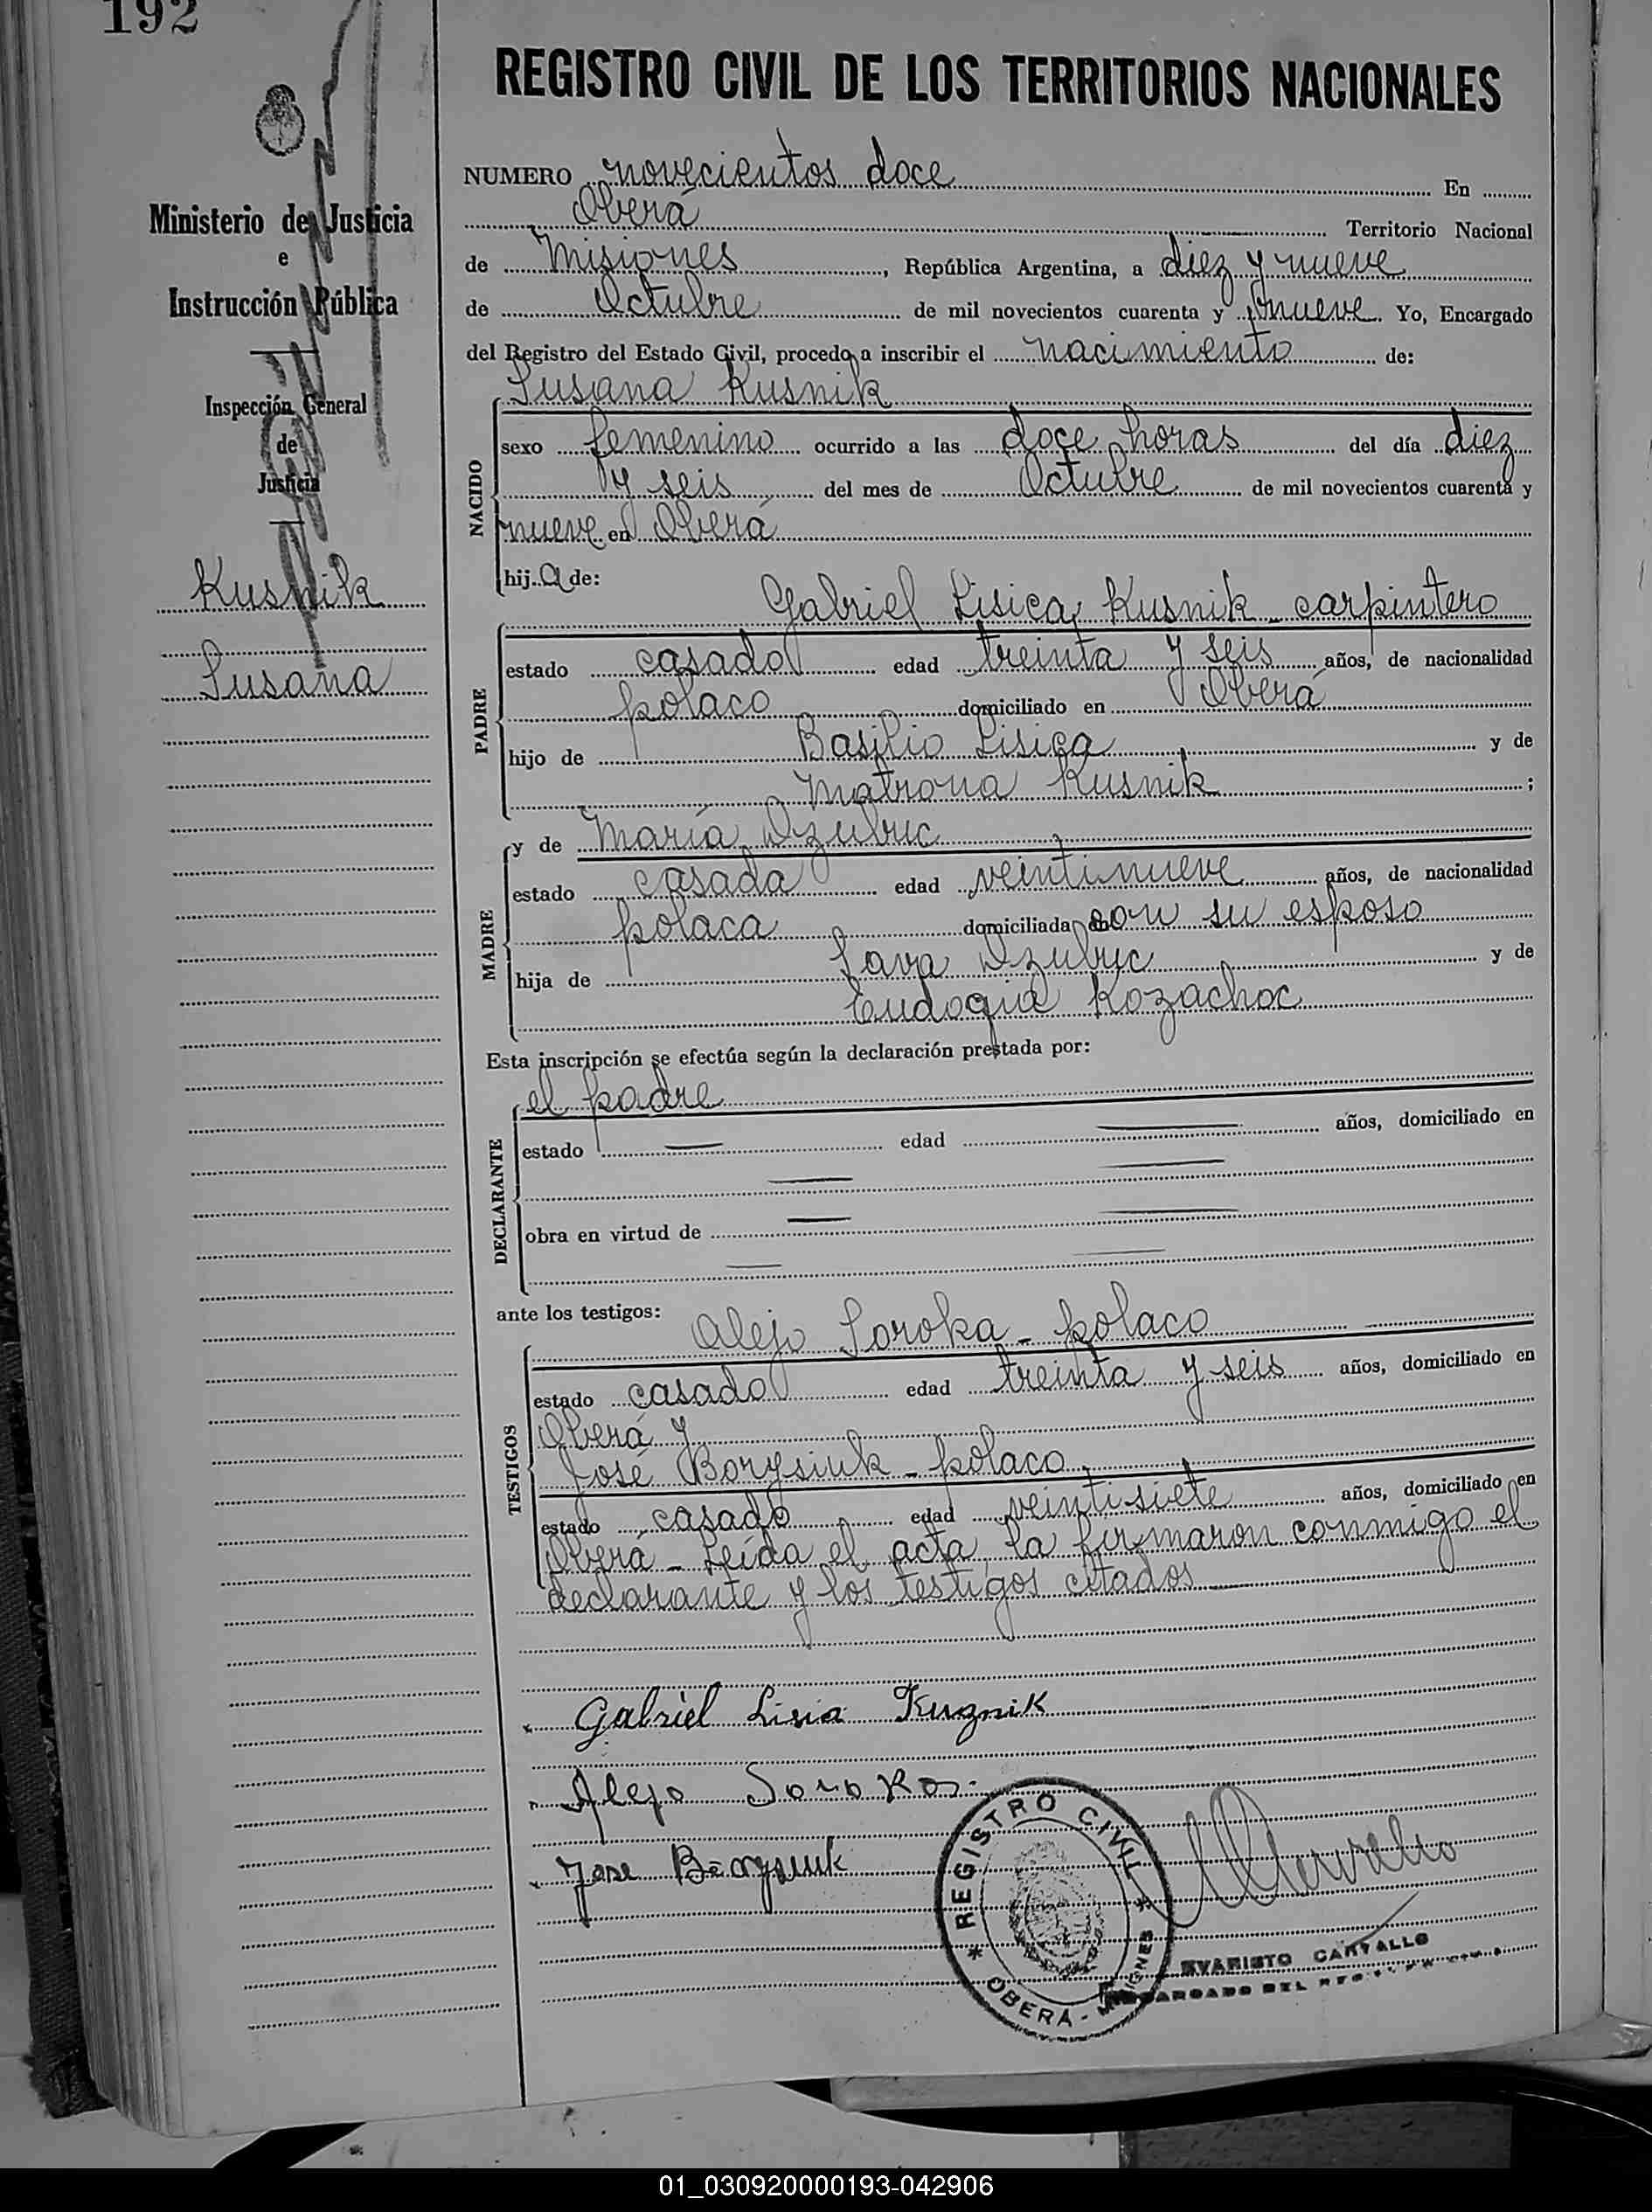 192
REGISTRO CIVIL DE LOS TERRITORIOS NACIONALES
Ministerio de Justicia
e
Instrucción Pública
Inspección General
de
Justicia
Kusnik
Susana
NUMERO novecientos doce En
Oberá Territorio Nacional
de Misiones, República Argentina, a diez y nueve
de Octubre de mil novecientos cuarenta y nueve. Yo, Encargado
del Registro del Estado Civil, procedo a inscribir el nacimiento de:
Susana Kusnik
NACIDO
sexo femenino ocurrido a las doce horas del día diez
y seis del mes de Octubre de mil novecientos cuarenta y
nueve en Oberá
hija de:
Gabriel Lisica Kusnik - carpintero
PADRE
estado casado edad treinta y seis años, de nacionalidad
polaco domiciliado en Oberá
hijo de Basilio Lisica y de
Matrona Kusnik ;
MADRE
y de María Dzubuc
estado casada edad veintinueve años, de nacionalidad
polaca domiciliada con su esposo
hija de Sava Dzubuc y de
Eudogia Kozachoc
Esta inscripción se efectúa según la declaración prestada por:
el padre
DECLARANTE
estado — edad — años, domiciliado en
obra en virtud de
ante los testigos:
Alejo Soroka - polaco
TESTIGOS
estado casado edad treinta y seis años, domiciliado en
Oberá y
José Borysiuk - polaco
estado casado edad veintisiete años, domiciliado en
Oberá - Leída el acta, la firmaron conmigo el
declarante y los testigos citados
Gabriel Lisia Kuznik
Alejo Soroka
Jose Borysiuk
REGISTRO CIVIL
* OBERÁ - MISIONES *
EVARISTO CARVALLO
ENCARGADO DEL REGISTRO CIVIL
01_030920000193-042906